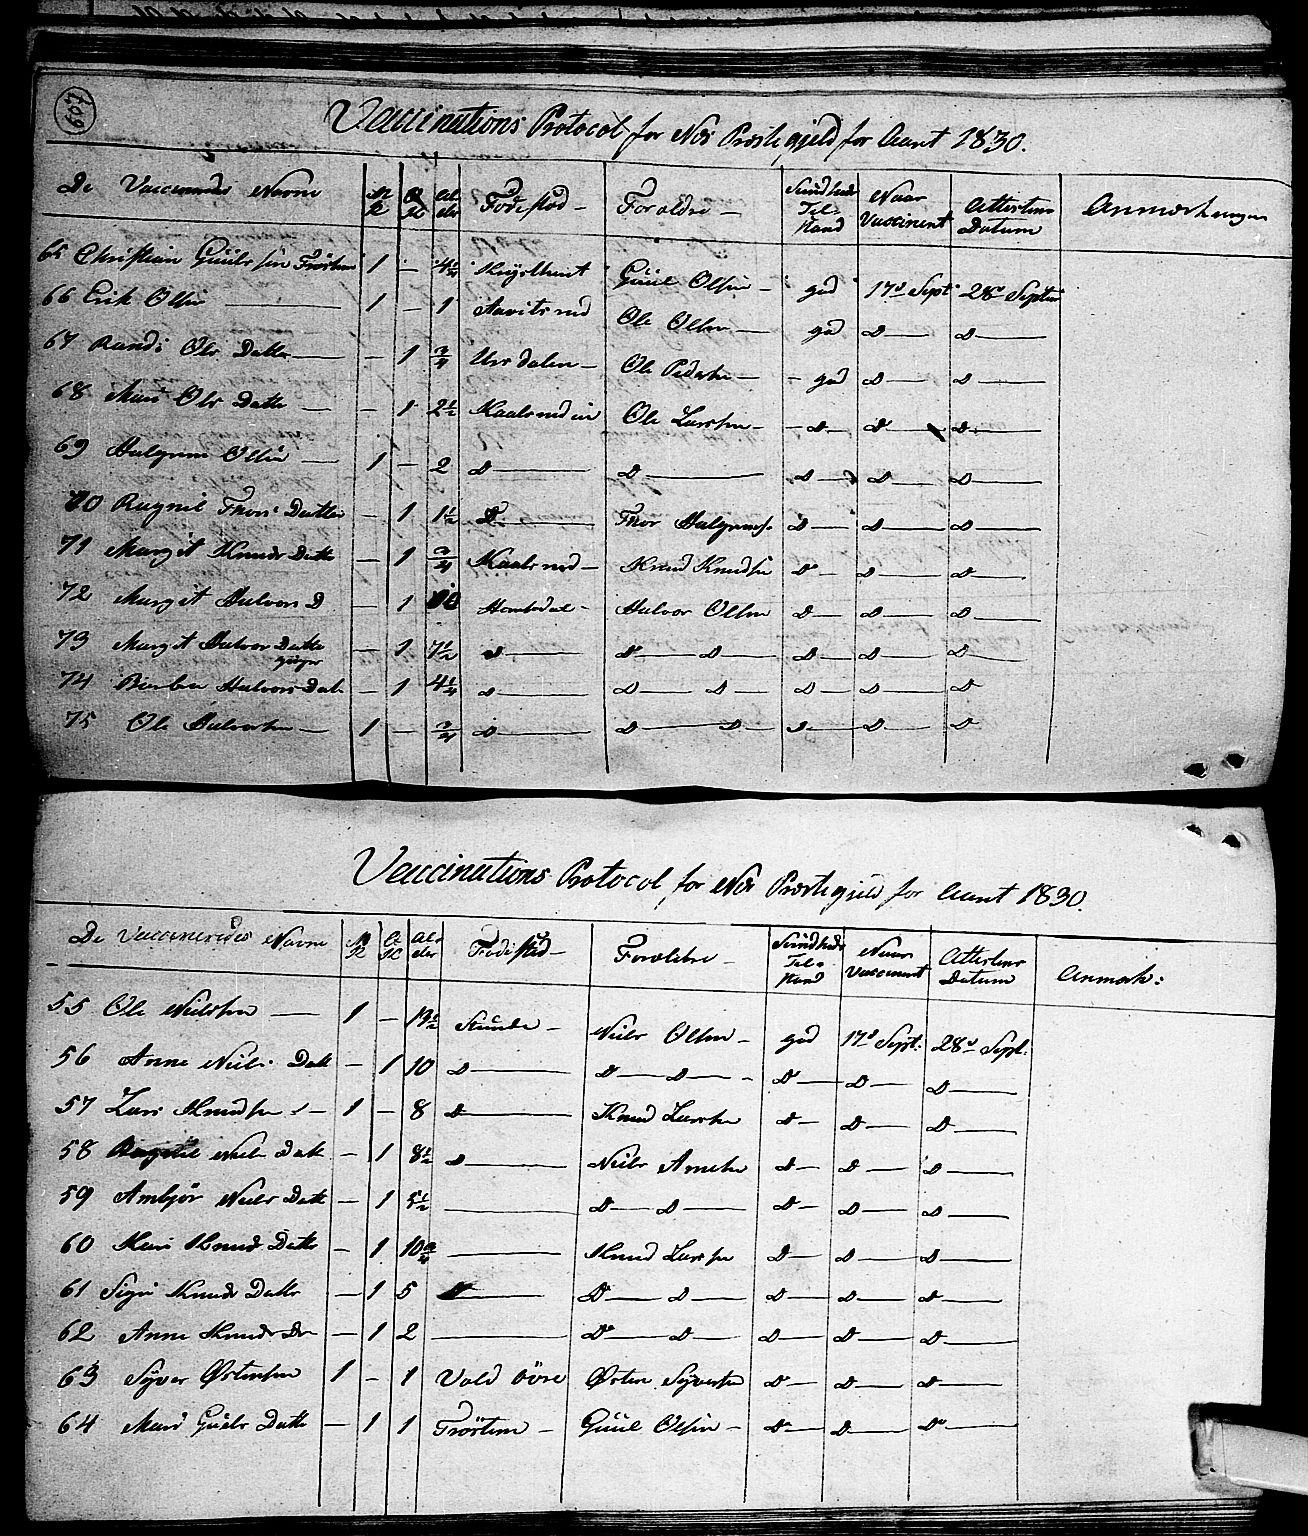 607
Vaccinations Protocol for Næs Præstegjeld for Aaret 1830.
De Vaccineredes Navne M K Q K Alder Födested Forældre Sundheds Tilstand Naar Vaccineret Attestens Datum Anmærkninger
65 Christian Guulssön Tröstem 1 — 4¼ Guul Olsen god 17d Septr 28d Septbr
66 Erik Olsen 1 — 1 Ole Olsen god D D
67 Randi Ols Datter — 1 ¾ Ole Pedersen god D D
68 Mari Ols Datte — 1 2½ Ole Larssen D D D
69 Halgrim Olsen 1 — 2 D D D D D
70 Ragnil Thors Datter — 1 1½ D Thor Halgrims. D D D
71 Margit Knuds Datte — 1 ¾ Knud Knudsen D D D
72 Margit Halvors D — 1 Halvor Olsen D D D
73 Margit Halvors Datte — 1 7½ D D D D D D
yngr
74 Halvors Dat. — 1 4¼ D D D D D D
75 Ole Halvorsen 1 — ¾ D D D D D D
Vaccinations Protocol for Næs Præstegjeld for Aaret 1830.
De Vaccineredes Navne M K Q K Alder Födested Forældre Sundheds Tilstand Naar Vaccineret Attestens Datum Anmærk:
55 Ole Neilssen 1 — 13½ Neils Olsen god 17d Sept: 28d Sept:
56 Anne Neils Datt — 1 10 D D D D D D
57 Lars Knudsen 1 — 8 D Knud Larssen D D D
58 Ragnil Neils Datt — 1 8½ D Neils Arnesen D D D
59 Ambjör Neils Datt — 1 5½ D D D D D
60 Kari Knuds Datter — 1 10¾ Knud Larssen D D D
61 Sigri Knuds Datter — 1 5 D D D D D
62 Anne Knuds Dr — 1 2 D D D D D
63 Syver Østensen 1 — 1 Vold övre Østen Syversen D D D
64 Mari Guuls Datte — 1 1 Tröstem Guul Olsen D D D